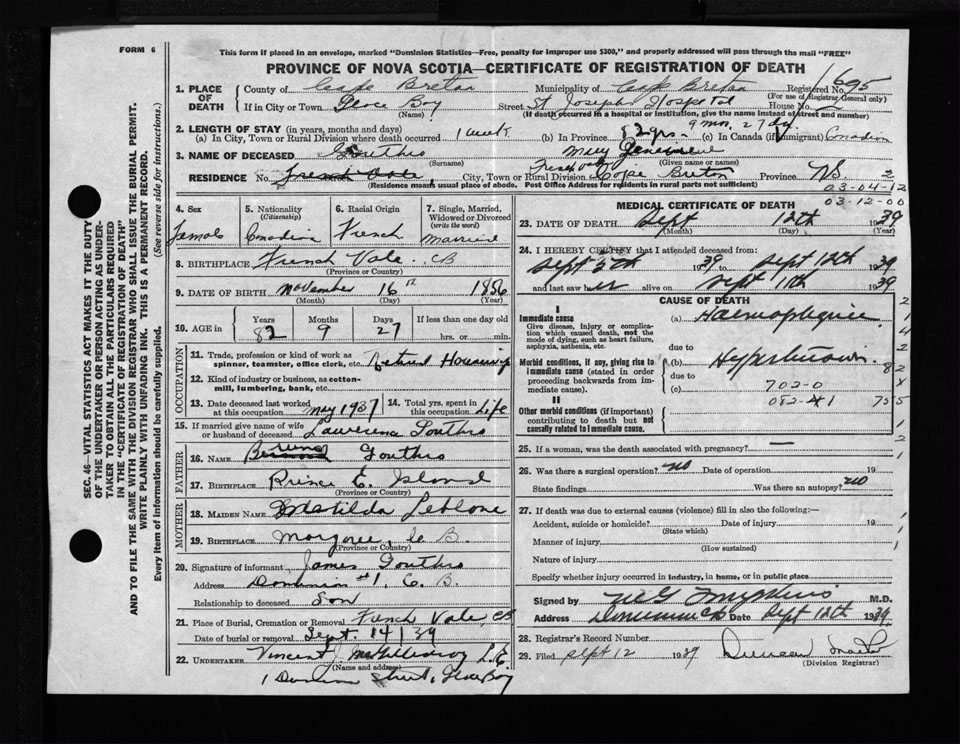 FORM 6
This form if placed in an envelope, marked "Dominion Statistics—Free, penalty for improper use $300," and properly addressed will pass through the mail "FREE"
PROVINCE OF NOVA SCOTIA—CERTIFICATE OF REGISTRATION OF DEATH
1. PLACE OF DEATH
County of Cape Breton Municipality of Cape Breton Registered No. 1695
(For use of Registrar General only)
If in City or Town Glace Bay Street St Joseph Hospital House No.
(Name) (If death occurred in a hospital or institution, give the name instead of street and number)
2. LENGTH OF STAY (in years, months and days) 9 mos. 27 dys.
(a) In City, Town or Rural Division where death occurred 1 week (b) In Province 82 yrs. (c) In Canada (if immigrant) Canadian
3. NAME OF DECEASED Gouthro Mary Genevieve
(Surname) (Given name or names)
RESIDENCE No. Street City, Town or Rural Division Cape Breton Province N.S. 2
(Residence means usual place of abode. Post Office Address for residents in rural parts not sufficient)
03-04-12
03-12-00
4. Sex Female
5. Nationality (Citizenship) Canadian
6. Racial Origin French
7. Single, Married, Widowed or Divorced (write the word) Married
8. BIRTHPLACE French Vale CB
(Province or Country)
9. DATE OF BIRTH November 16 1856
(Month) (Day) (Year)
10. AGE in Years 82 Months 9 Days 27 If less than one day hrs. or min.
OCCUPATION
11. Trade, profession or kind of work as spinner, teamster, office clerk, etc. Retired Housewife
12. Kind of industry or business, as cotton-mill, lumbering, bank, etc.
13. Date deceased last worked at this occupation May 1937
14. Total yrs. spent in this occupation Life
15. If married give name of wife or husband of deceased Lawrence Gouthro
FATHER
16. Name Bruno Gouthro
17. BIRTHPLACE Prince E. Island
(Province or Country)
MOTHER
18. MAIDEN NAME Matilda Leblanc
19. BIRTHPLACE Margaree, C. B.
(Province or Country)
20. Signature of informant James Gouthro
Address Dominion #1, C. B.
Relationship to deceased Son
21. Place of Burial, Cremation or Removal French Vale CB
Date of burial or removal Sept. 14/39
22. UNDERTAKER Vincent J. McGillivray
(Name and address)
1 Dominion Street, Glace Bay
MEDICAL CERTIFICATE OF DEATH
23. DATE OF DEATH Sept 12th 1939
(Month) (Day) (Year)
24. I HEREBY CERTIFY that I attended deceased from:
Sept 5th 1939 to Sept 12th 1939
and last saw her alive on Sept 11th 1939
CAUSE OF DEATH
I
Immediate cause
Give disease, injury or complication which caused death, not the mode of dying, such as heart failure, asphyxia, asthenia, etc.
(a)
due to
Morbid conditions, if any, giving rise to immediate cause (stated in order proceeding backwards from immediate cause).
(b)
due to
(c) 702-0
II
Other morbid conditions (if important) contributing to death but not causally related to immediate cause.
25. If a woman, was the death associated with pregnancy? —
26. Was there a surgical operation? no Date of operation 19
State findings Was there an autopsy? no
27. If death was due to external causes (violence) fill in also the following:—
Accident, suicide or homicide? Date of injury 19
(State which)
Manner of injury
(How sustained)
Nature of injury
Specify whether injury occurred in industry, in home, or in public place
Signed by M.D.
Address Dominion CB Date Sept 12th 1939
28. Registrar's Record Number
29. Filed Sept 12 1939 Duncan
(Division Registrar)
SEC. 46—VITAL STATISTICS ACT MAKES IT THE DUTY
OF THE UNDERTAKER OR PERSON ACTING AS UNDERTAKER TO OBTAIN ALL THE PARTICULARS REQUIRED
IN THE "CERTIFICATE OF REGISTRATION OF DEATH"
AND TO FILE THE SAME WITH THE DIVISION REGISTRAR WHO SHALL ISSUE THE BURIAL PERMIT.
WRITE PLAINLY WITH UNFADING INK. THIS IS A PERMANENT RECORD.
Every item of information should be carefully supplied. (See reverse side for instructions.)